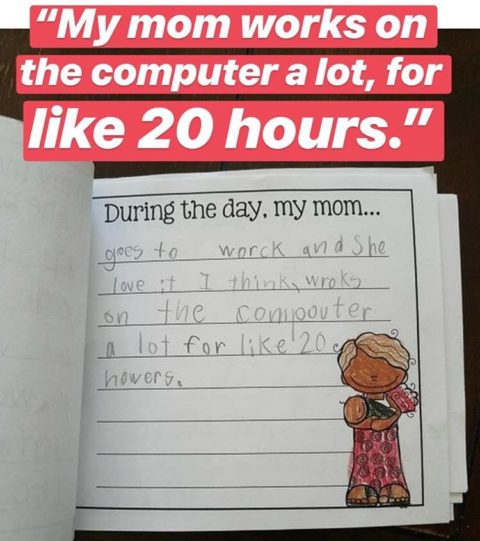 "My mom works on
the computer a lot, for
like 20 hours."
During the day, my mom...
goes to worck and She
love it I think, wroks
on the compouter
a lot for like 20
howers.